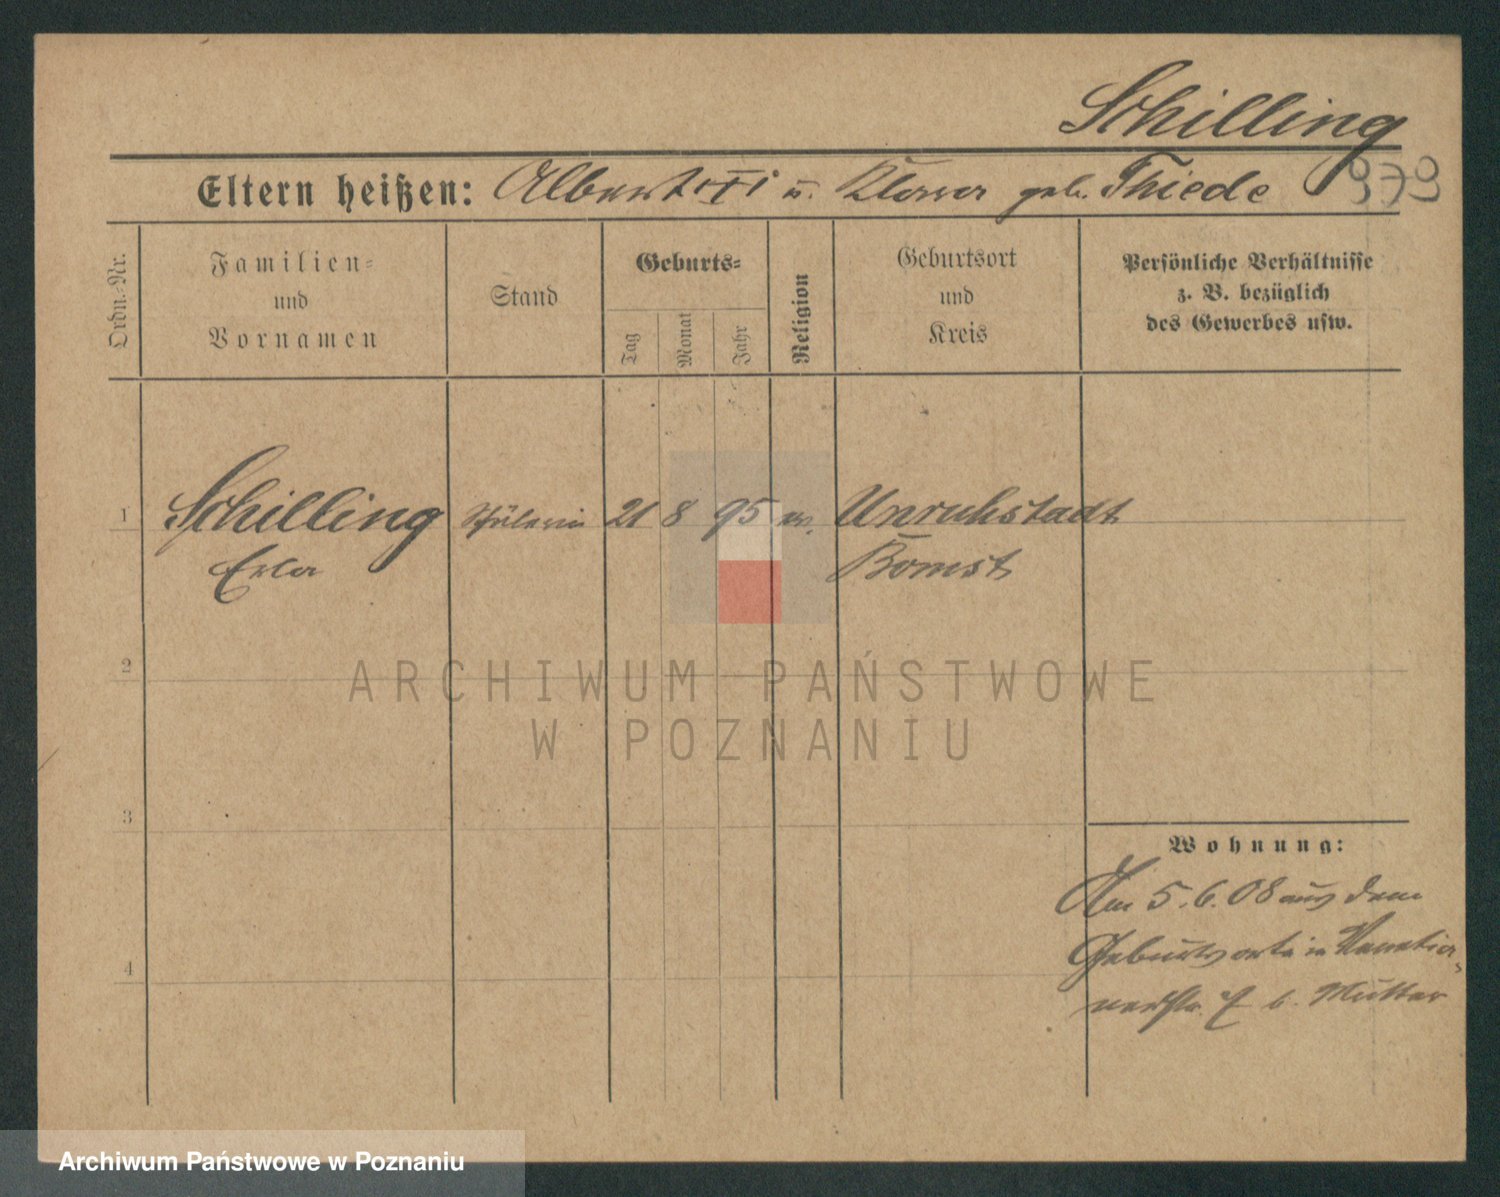 Schilling
979
Eltern heißen: Albert u. Klara geb. Thiede
Ordn.-Nr.
Familien-
und
Vornamen
Stand
Geburts-
Tag
Monat
Jahr
Religion
Geburtsort
und
Kreis
Persönliche Verhältnisse
z. B. bezüglich
des Gewerbes usw.
1 Schilling Schülerin 21 8 95 ev. Unruhstadt
Bomst
2
3
4
Wohnung:
Am 5.6.08 aus dem
Geburtsorte in
b. Mutter
ARCHIWUM PAŃSTWOWE
W POZNANIU
Archiwum Państwowe w Poznaniu